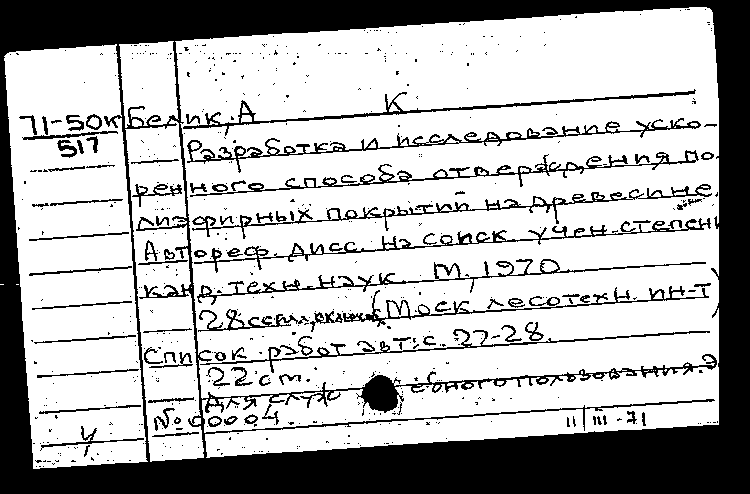 71-50к Белик, А К
517
Разработка и исследование уско-
ренного способа отверждения по-
лиэфирных покрытий на древесине.
Автореф. дисс. на соиск. учен. степени
канд. техн. наук. М., 1970.
28 с. (Моск. лесотехн. ин-т)
Список работ авт.: с. 27-28.
22 см.
Для служебного пользования. Э
№ 00004.
II/III-71